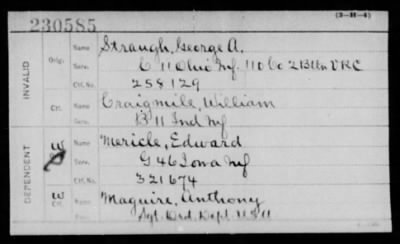 230585
(3-H-4)
INVALID
Orig.
Name Straugh, George A.
Serv. C 11 Ohio Inf. 110 Co 2 Btln VRC
Ctf. No. 258129
Ctf.
Name Craigmile, William
Serv. B 11 Ind Inf
DEPENDENT
W
Name Mericle, Edward
Serv. G 46 Iowa Inf
Ctf. No. 321674
W
Ctf.
Name Maguire, Anthony
Serv. Sgt. Ord. Dept. U.S.